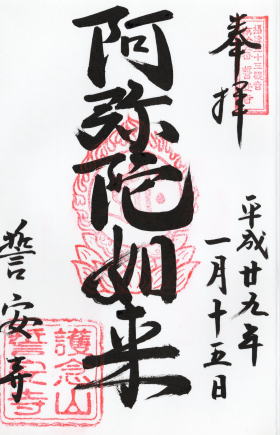 奉拝
平成廿九年
一月十五日
阿弥陀如来
誓安寺
護念山
誓安寺